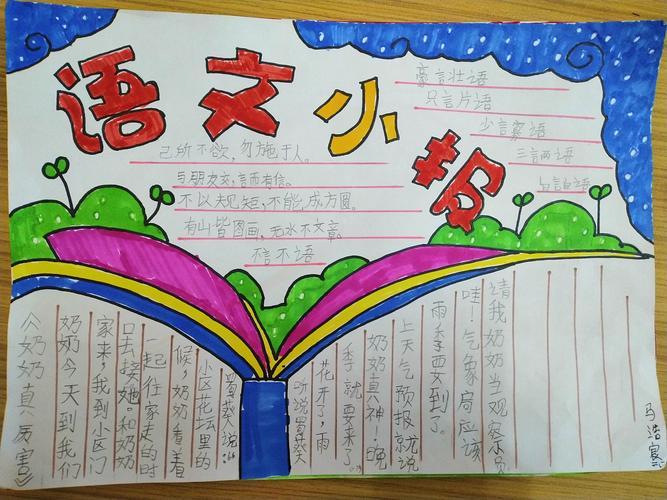 语文小报
豪言壮语
只言片语
少言寡语
三言两语
自言自语
己所不欲,勿施于人。
与朋友交,言而有信。
不以规矩,不能,成方圆。
有山皆图画,无水不文章。
不言不语
《奶奶真厉害》
奶奶今天到我们
家来,我到小区门
口去接她。和奶奶
一起往家走的时
候,奶奶看着
小区花坛里的
蜀葵说:“
听说蜀葵
花开了,雨
季就要来了。”
奶奶真神!晚
上天气预报就说
雨季要到了。
哇!气象局应该
请我奶奶当观察员
马浩宸